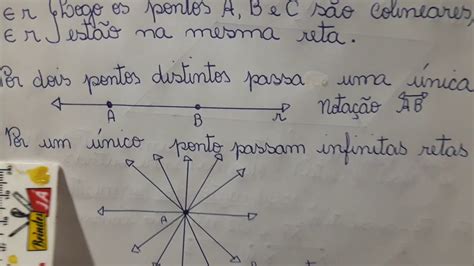 ∈ r } Logo os pontos A, B e C são colineares,
∈ r } estão na mesma reta.
Por dois pontos distintos passa uma única
A B r Notação AB
Por um único ponto passam infinitas retas
A
Brindes JA